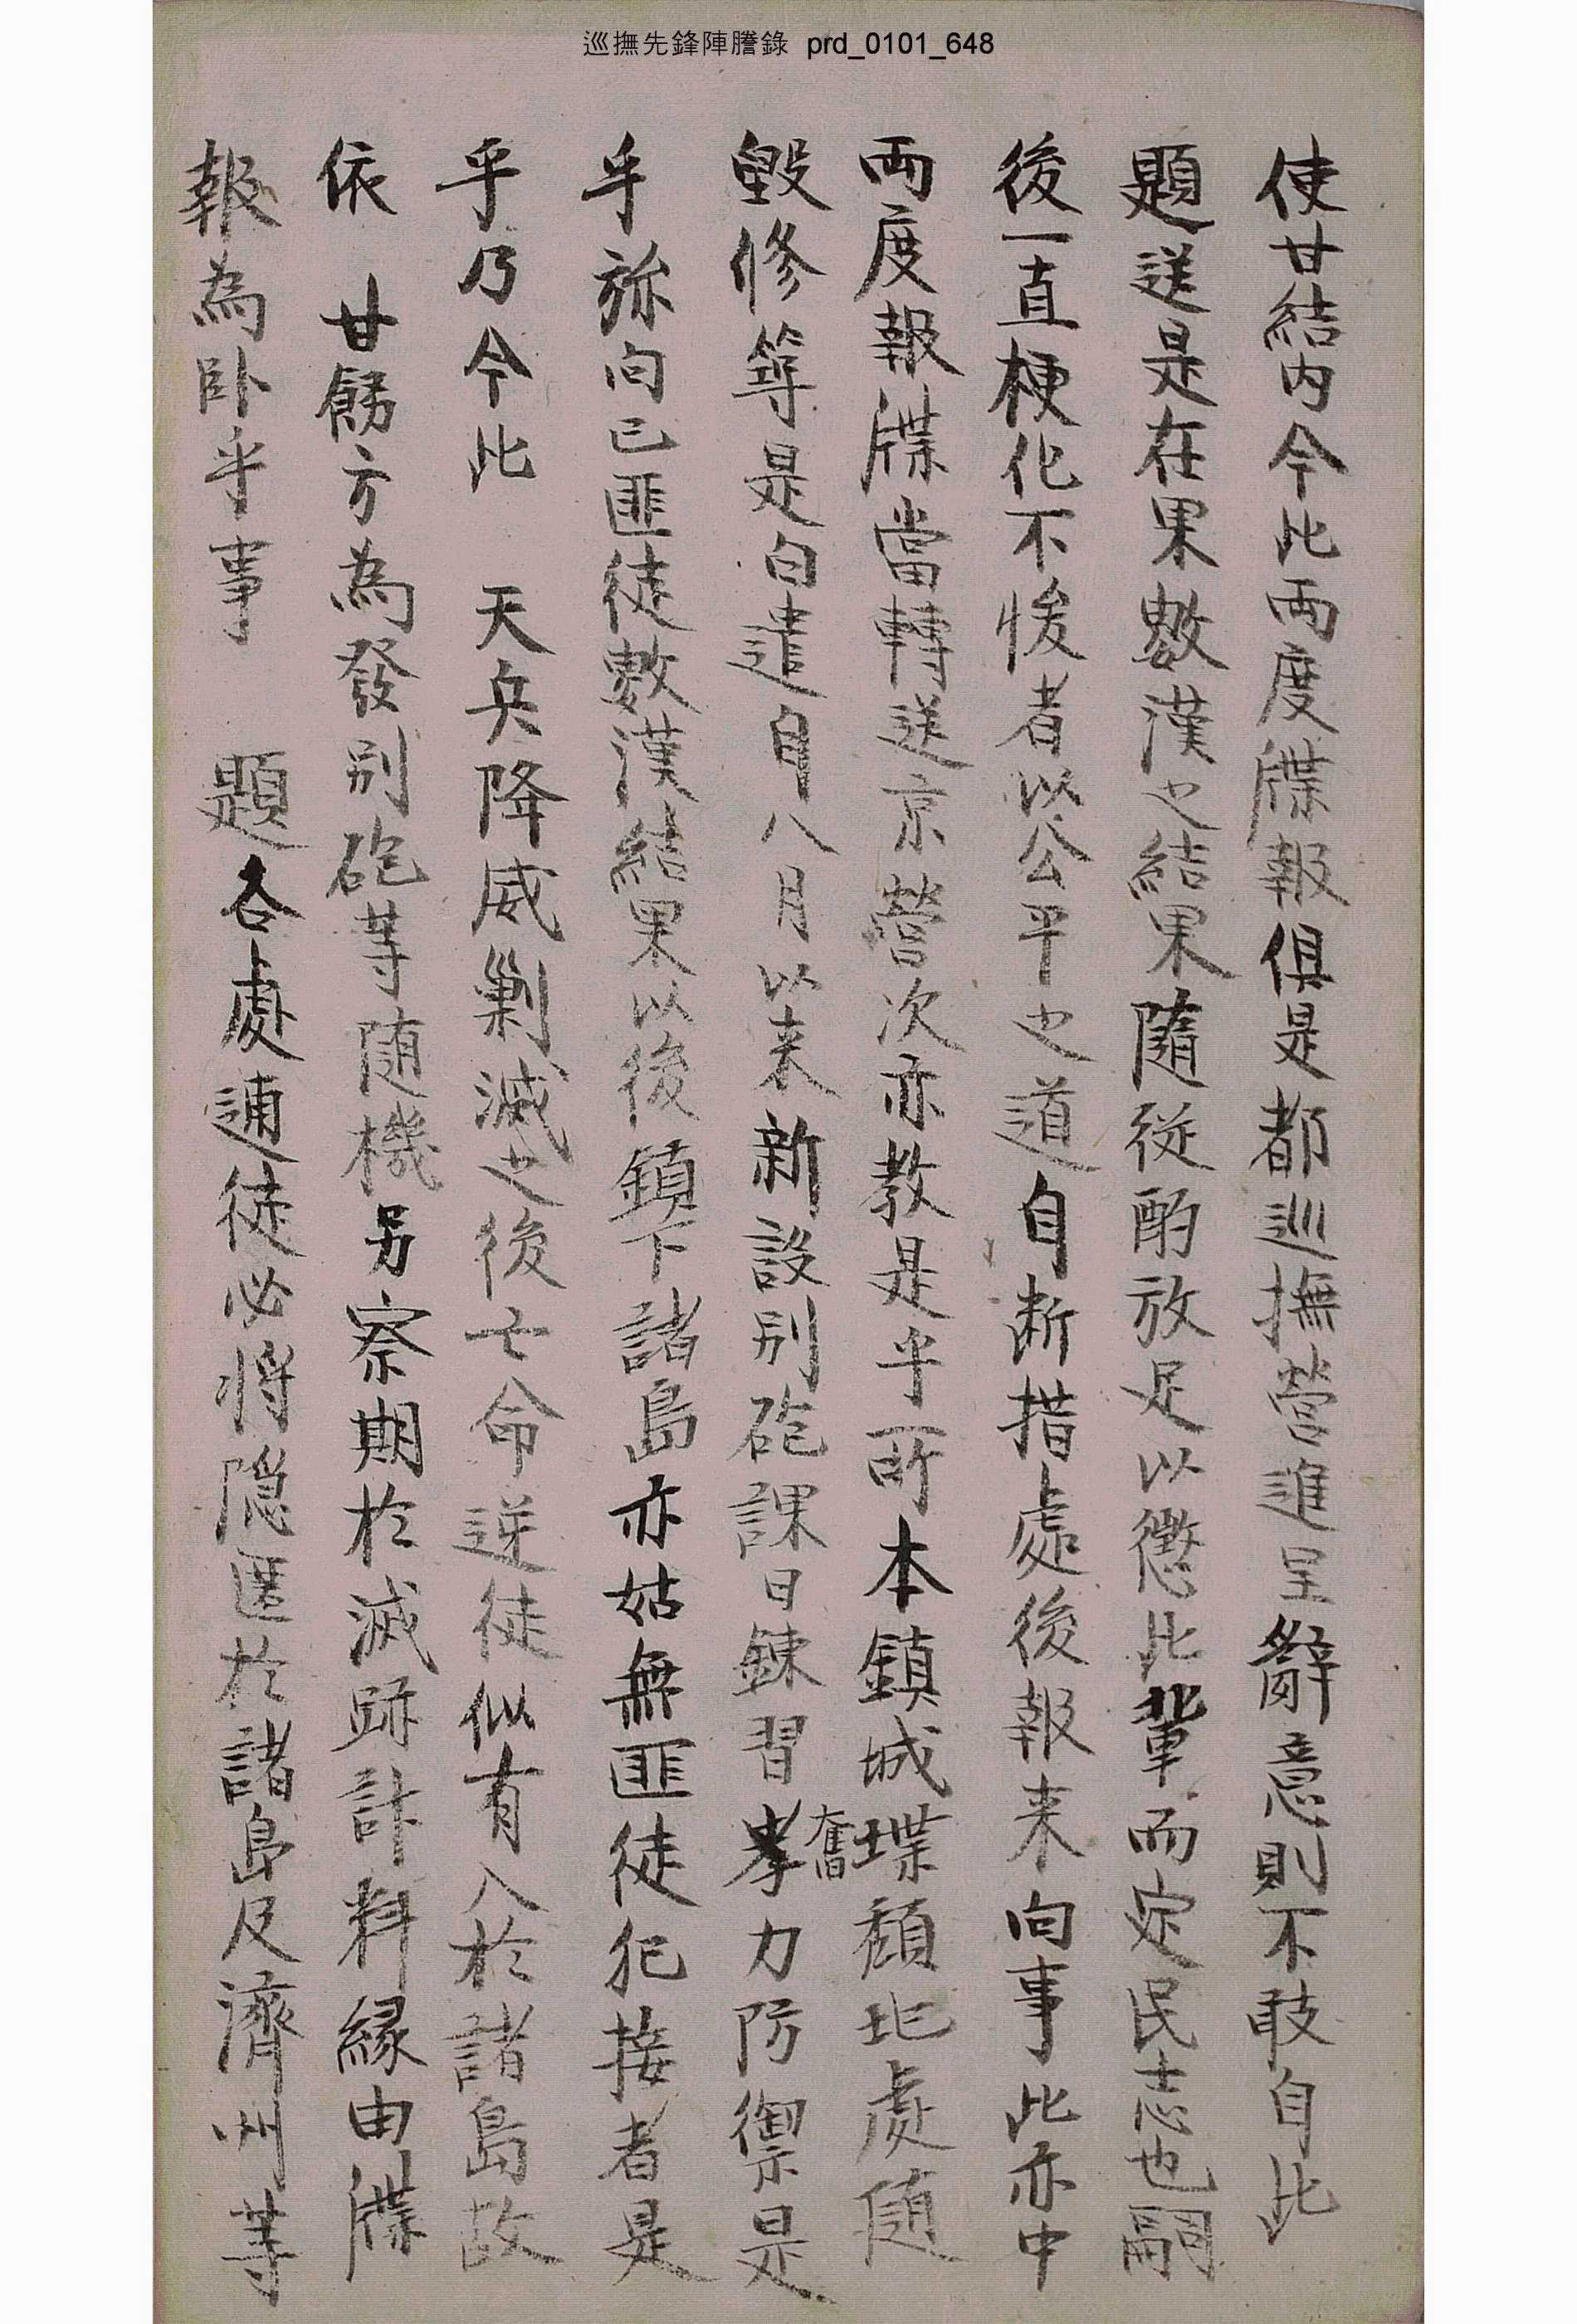 巡撫先鋒陣謄錄 prd_0101_648
使甘結內今此兩度牒報俱是都巡撫營進呈辭意則不敢自此
題送是在果數漢之結果隨從酌放足以懲此輩而定民志也嗣
後一直梗化不悛者以公平之道自断措處後報来向事此亦中
兩度報牒當轉送京營次亦教是乎所本鎮城堞頹圮處随
毀修等是白遣自八月以来新設別砲課日鍊習奮力防禦是
乎旀向已匪徒數漢結果以後鎮下諸島亦姑無匪徒犯接者是
乎乃今此 天兵降威剿滅之後亡命逆徒似有入於諸島故
依 甘餙方為發別砲等随機另察期於滅跡計料緣由牒
報為臥乎事 題各處逋徒必将隐匿於諸島及濟州等